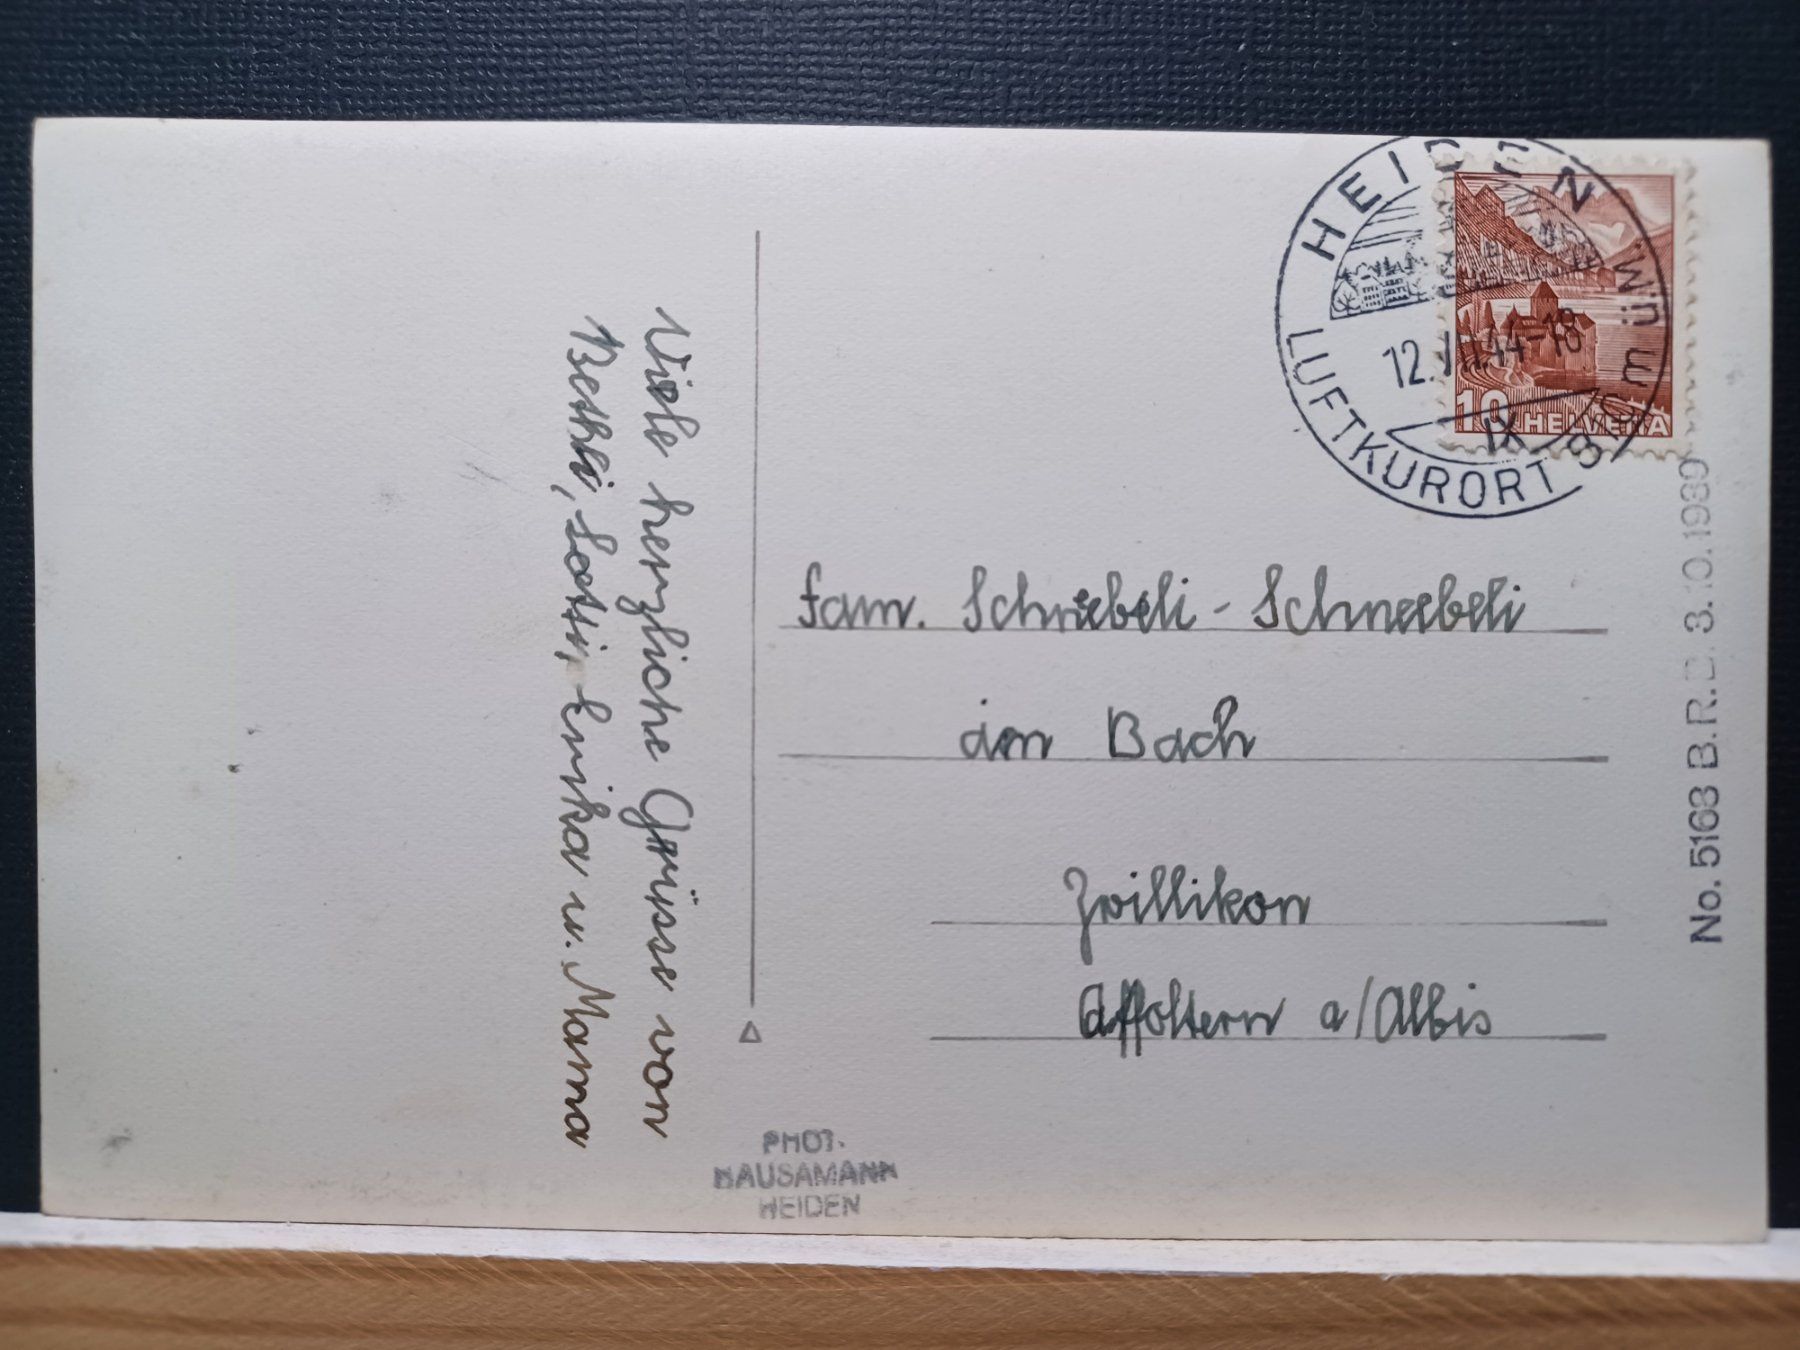 Viele herzliche Grüsse von
Bethli, Lotti, Erika u. Mama
HEIDEN
810 m ü M
12. VII. 44-18
IX
LUFTKURORT
10 HELVETIA
Fam. Schneebeli - Schneebeli
im Bach
Zwillikon
Affoltern a/Albis
No. 5168 B.R.B. 3.10.1939
PHOT.
HAUSAMANN
HEIDEN